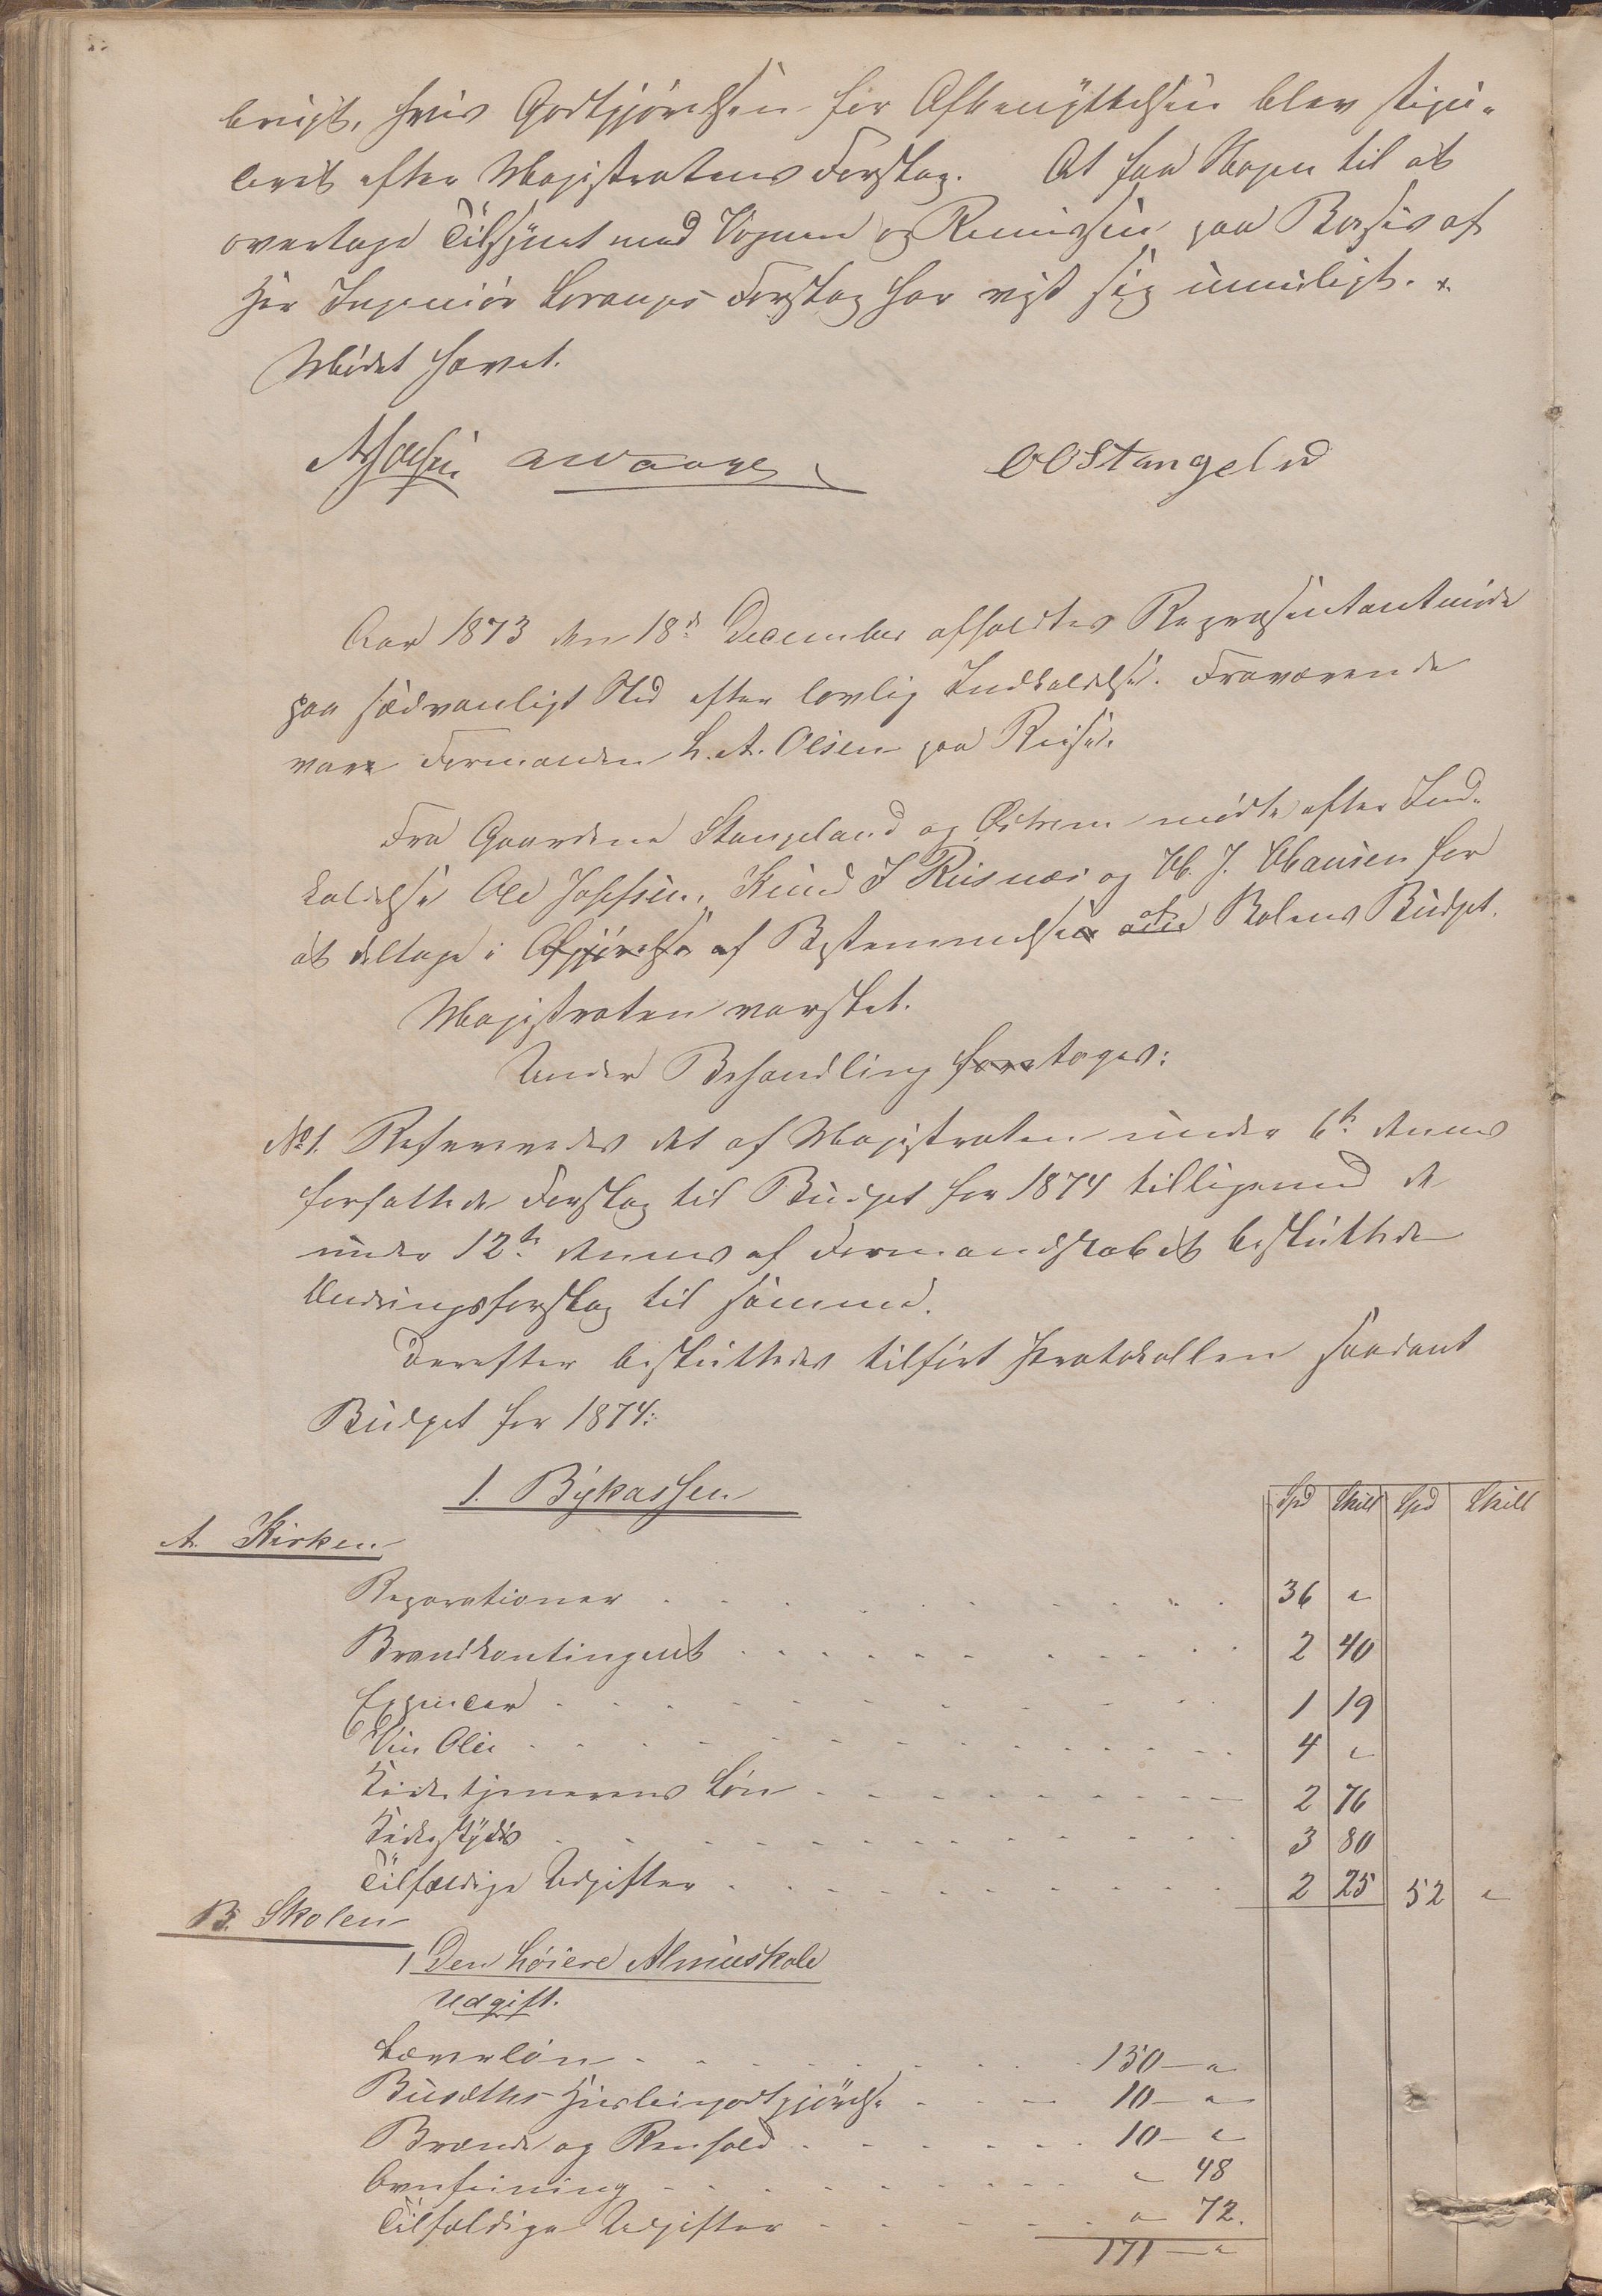 brugt, hvis Godtgjørelsen for Afbenyttelsen blev stipu-
leret efter Magistratens Forslag. At faa Nogen til at
overtage Tilsynet med Vognen og Remissen paa Basis af
Hr Ingeniør Loranges Forslag har vist sig umuligt.
Mødet hævet.
OOStangelnd
Aar 1873 den 18d December afholdtes Repræsentantmøde
paa sædvanligt Sted efter lovlig Indkaldelse. Fraværende
vare Formanden L. A. Olsen paa Reise.
Fra Gaardene Stangeland og Østrem mødte efter Ind-
kaldelse Ole Josefsen, Knud I Riisnæs og M. J. Mausen for
at deltage i Afgjørelse af Bestemmelsen af Skolens Budget.
Magistraten varslet.
Under Behandling foretoges:
No 1. Refereredes det af Magistraten under 6te dennes
forfattede Forslag til Budget for 1874 tilligemed de
under 12te dennes af Formandskabet besluttede
Ændringsforslag til samme.
Derefter besluttedes tilført Protokollen saadant
Budget for 1874:
1. Bykassen
Spd Skill Spd Skill
A. Kirken
Reparationer 36 "
Brandkontingent 2 40
1 19
Vin Olie 4 "
Kirketjenerens Løn 2 76
3 80
Tilfældige Udgifter 2 25 52 "
B. Skolen
1 Den höiere Almueskole
Udgift.
Lærerløn 150 - "
Busæths Huusleiegodtgjørelse 10 - "
Brænde og Renhold 10 - "
Ovnfeining " 48
Tilfældige Udgifter " 72.
171 - "